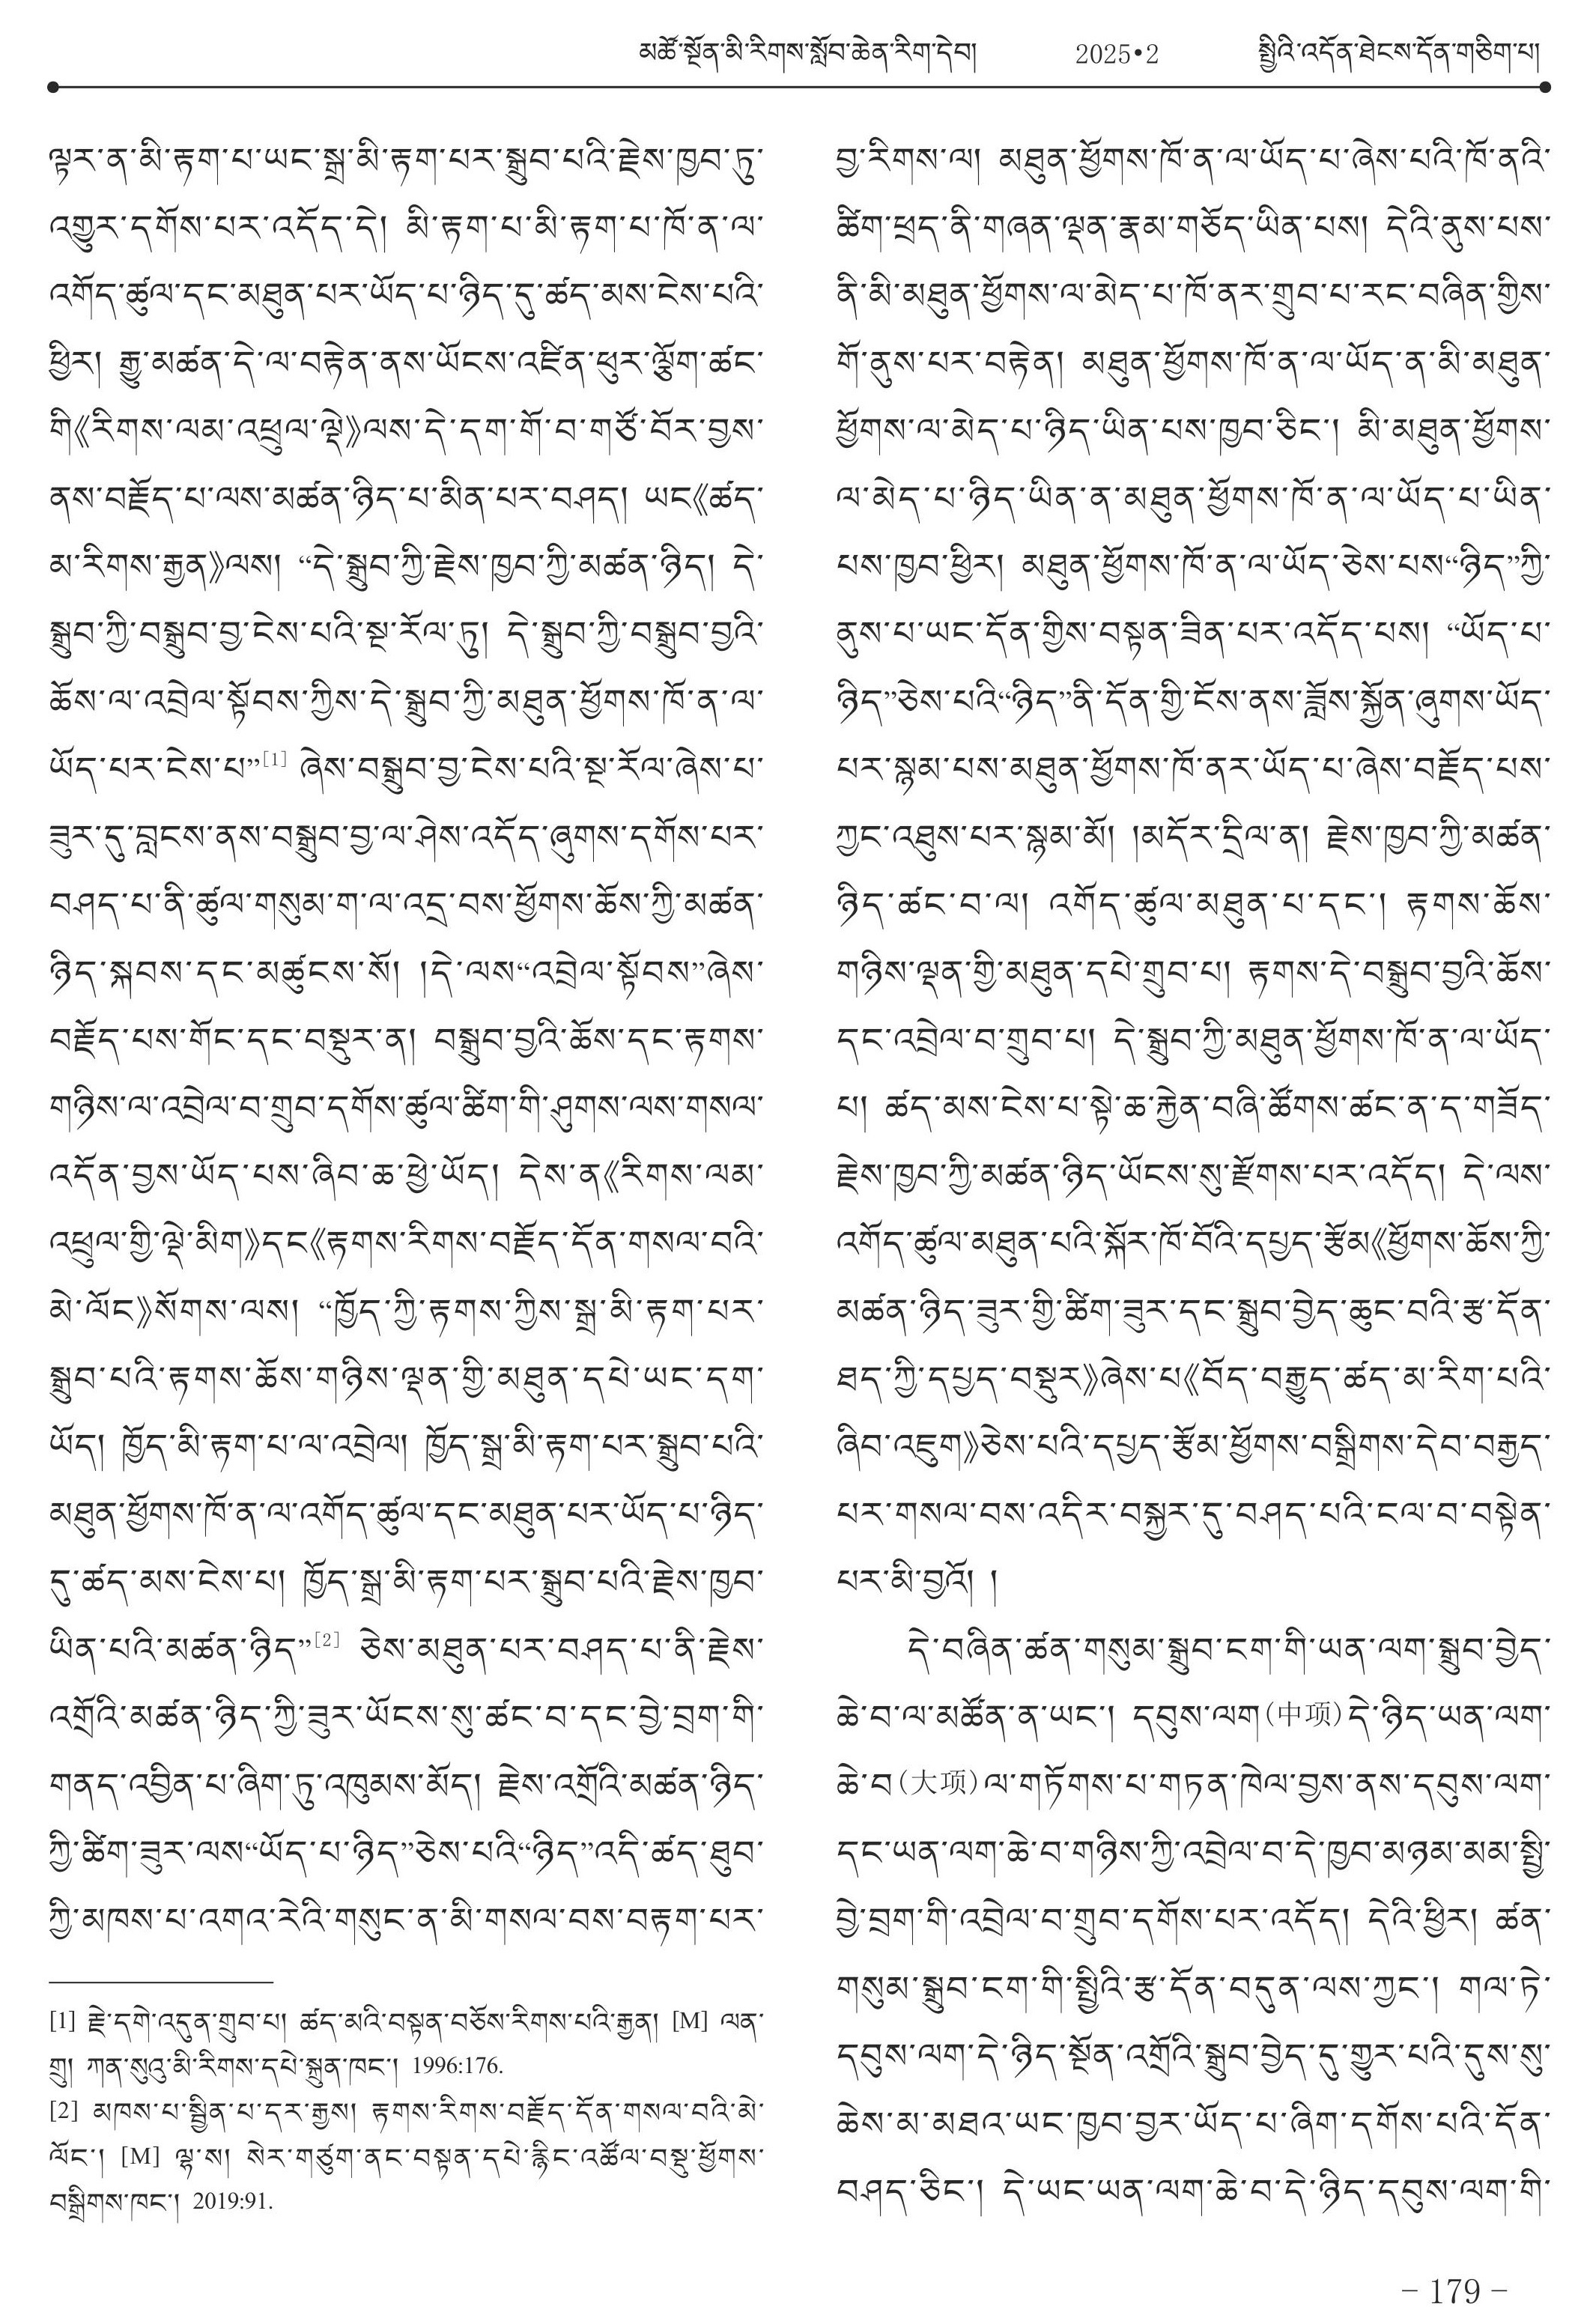 མཚོ་སྔོན་མི་རིགས་སློབ་ཆེན་རིག་དེབ། 2025•2 སྤྱིའི་འདོན་ཐེངས་དོན་གཅིག་པ།
ལྟར་ན་མི་རྟག་པ་ཡང་སྒྲ་མི་རྟག་པར་སྒྲུབ་པའི་རྗེས་ཁྱབ་ཏུ་
འགྱུར་དགོས་པར་འདོད་དེ། མི་རྟག་པ་མི་རྟག་པ་ཁོ་ན་ལ་
འགོད་ཚུལ་དང་མཐུན་པར་ཡོད་པ་ཉིད་དུ་ཚད་མས་ངེས་པའི་
ཕྱིར། རྒྱུ་མཚན་དེ་ལ་བརྟེན་ནས་ཡོངས་འཛིན་ཕུར་ལྕོག་ཚང་
གི《རིགས་ལམ་འཕྲུལ་ལྡེ》ལས་དེ་དག་གོ་བ་གཙོ་བོར་བྱས་
ནས་བརྗོད་པ་ལས་མཚན་ཉིད་པ་མིན་པར་བཤད། ཡང《ཚད་
མ་རིགས་རྒྱན》ལས། “དེ་སྒྲུབ་ཀྱི་རྗེས་ཁྱབ་ཀྱི་མཚན་ཉིད། དེ་
སྒྲུབ་ཀྱི་བསྒྲུབ་བྱ་ངེས་པའི་སྔ་རོལ་ཏུ། དེ་སྒྲུབ་ཀྱི་བསྒྲུབ་བྱའི་
ཆོས་ལ་འབྲེལ་སྟོབས་ཀྱིས་དེ་སྒྲུབ་ཀྱི་མཐུན་ཕྱོགས་ཁོ་ན་ལ་
ཡོད་པར་ངེས་པ”[1] ཞེས་བསྒྲུབ་བྱ་ངེས་པའི་སྔ་རོལ་ཞེས་པ་
ཟུར་དུ་བླངས་ནས་བསྒྲུབ་བྱ་ལ་ཤེས་འདོད་ཞུགས་དགོས་པར་
བཤད་པ་ནི་ཚུལ་གསུམ་ག་ལ་འདྲ་བས་ཕྱོགས་ཆོས་ཀྱི་མཚན་
ཉིད་སྐབས་དང་མཚུངས་སོ། །དེ་ལས“འབྲེལ་སྟོབས”ཞེས་
བརྗོད་པས་གོང་དང་བསྡུར་ན། བསྒྲུབ་བྱའི་ཆོས་དང་རྟགས་
གཉིས་ལ་འབྲེལ་བ་གྲུབ་དགོས་ཚུལ་ཚིག་གི་ཤུགས་ལས་གསལ་
འདོན་བྱས་ཡོད་པས་ཞིབ་ཆ་ཕྱེ་ཡོད། དེས་ན《རིགས་ལམ་
འཕྲུལ་གྱི་ལྡེ་མིག》དང《རྟགས་རིགས་བརྗོད་དོན་གསལ་བའི་
མེ་ལོང》སོགས་ལས། “ཁྱོད་ཀྱི་རྟགས་ཀྱིས་སྒྲ་མི་རྟག་པར་
སྒྲུབ་པའི་རྟགས་ཆོས་གཉིས་ལྡན་གྱི་མཐུན་དཔེ་ཡང་དག
ཡོད། ཁྱོད་མི་རྟག་པ་ལ་འབྲེལ། ཁྱོད་སྒྲ་མི་རྟག་པར་སྒྲུབ་པའི་
མཐུན་ཕྱོགས་ཁོ་ན་ལ་འགོད་ཚུལ་དང་མཐུན་པར་ཡོད་པ་ཉིད་
དུ་ཚད་མས་ངེས་པ། ཁྱོད་སྒྲ་མི་རྟག་པར་སྒྲུབ་པའི་རྗེས་ཁྱབ་
ཡིན་པའི་མཚན་ཉིད”[2] ཅེས་མཐུན་པར་བཤད་པ་ནི་རྗེས་
འགྲོའི་མཚན་ཉིད་ཀྱི་ཟུར་ཡོངས་སུ་ཚང་བ་དང་བྱེ་བྲག་གི་
གནད་འབྱིན་པ་ཞིག་ཏུ་འཁུམས་མོད། རྗེས་འགྲོའི་མཚན་ཉིད་
ཀྱི་ཚིག་ཟུར་ལས“ཡོད་པ་ཉིད”ཅེས་པའི“ཉིད”འདི་ཚད་ཐུབ་
ཀྱི་མཁས་པ་འགའ་རེའི་གསུང་ན་མི་གསལ་བས་བརྟག་པར་
[1] རྗེ་དགེ་འདུན་གྲུབ་པ། ཚད་མའི་བསྟན་བཅོས་རིགས་པའི་རྒྱན། [M] ལན་
གྲུ། ཀན་སུའུ་མི་རིགས་དཔེ་སྐྲུན་ཁང་། 1996:176.
[2] མཁས་པ་སྦྱིན་པ་དར་རྒྱས། རྟགས་རིགས་བརྗོད་དོན་གསལ་བའི་མེ་
ལོང་། [M] ལྷ་ས། སེར་གཙུག་ནང་བསྟན་དཔེ་རྙིང་འཚོལ་བསྡུ་ཕྱོགས་
བསྒྲིགས་ཁང་། 2019:91.
བྱ་རིགས་ལ། མཐུན་ཕྱོགས་ཁོ་ན་ལ་ཡོད་པ་ཞེས་པའི་ཁོ་ནའི་
ཚིག་ཕྲད་ནི་གཞན་ལྡན་རྣམ་གཅོད་ཡིན་པས། དེའི་ནུས་པས་
ནི་མི་མཐུན་ཕྱོགས་ལ་མེད་པ་ཁོ་ནར་གྲུབ་པ་རང་བཞིན་གྱིས་
གོ་ནུས་པར་བརྟེན། མཐུན་ཕྱོགས་ཁོ་ན་ལ་ཡོད་ན་མི་མཐུན་
ཕྱོགས་ལ་མེད་པ་ཉིད་ཡིན་པས་ཁྱབ་ཅིང་། མི་མཐུན་ཕྱོགས་
ལ་མེད་པ་ཉིད་ཡིན་ན་མཐུན་ཕྱོགས་ཁོ་ན་ལ་ཡོད་པ་ཡིན་
པས་ཁྱབ་ཕྱིར། མཐུན་ཕྱོགས་ཁོ་ན་ལ་ཡོད་ཅེས་པས“ཉིད”ཀྱི་
ནུས་པ་ཡང་དོན་གྱིས་བསྟན་ཟིན་པར་འདོད་པས། “ཡོད་པ་
ཉིད”ཅེས་པའི“ཉིད”ནི་དོན་གྱི་ངོས་ནས་ཟློས་སྐྱོན་ཞུགས་ཡོད་
པར་སྙམ་པས་མཐུན་ཕྱོགས་ཁོ་ནར་ཡོད་པ་ཞེས་བརྗོད་པས་
ཀྱང་འཐུས་པར་སྙམ་མོ། །མདོར་དྲིལ་ན། རྗེས་ཁྱབ་ཀྱི་མཚན་
ཉིད་ཚང་བ་ལ། འགོད་ཚུལ་མཐུན་པ་དང་། རྟགས་ཆོས་
གཉིས་ལྡན་གྱི་མཐུན་དཔེ་གྲུབ་པ། རྟགས་དེ་བསྒྲུབ་བྱའི་ཆོས་
དང་འབྲེལ་བ་གྲུབ་པ། དེ་སྒྲུབ་ཀྱི་མཐུན་ཕྱོགས་ཁོ་ན་ལ་ཡོད་
པ། ཚད་མས་ངེས་པ་སྟེ་ཆ་རྐྱེན་བཞི་ཚོགས་ཚང་ན་ད་གཟོད་
རྗེས་ཁྱབ་ཀྱི་མཚན་ཉིད་ཡོངས་སུ་རྫོགས་པར་འདོད། དེ་ལས་
འགོད་ཚུལ་མཐུན་པའི་སྐོར་ཁོ་བོའི་དཔྱད་རྩོམ《ཕྱོགས་ཆོས་ཀྱི་
མཚན་ཉིད་ཟུར་གྱི་ཚིག་ཟུར་དང་སྒྲུབ་བྱེད་ཆུང་བའི་རྩ་དོན་
ཐད་ཀྱི་དཔྱད་བསྡུར》ཞེས་པ《བོད་བརྒྱུད་ཚད་མ་རིག་པའི་
ཞིབ་འཇུག》ཅེས་པའི་དཔྱད་རྩོམ་ཕྱོགས་བསྒྲིགས་དེབ་བརྒྱད་
པར་གསལ་བས་འདིར་བསྐྱར་དུ་བཤད་པའི་ངལ་བ་བསྟེན་
པར་མི་བྱའོ། །
དེ་བཞིན་ཚན་གསུམ་སྒྲུབ་ངག་གི་ཡན་ལག་སྒྲུབ་བྱེད་
ཆེ་བ་ལ་མཚོན་ན་ཡང་། དབུས་ལག(中项)དེ་ཉིད་ཡན་ལག་
ཆེ་བ(大项)ལ་གཏོགས་པ་གཏན་ཁེལ་བྱས་ནས་དབུས་ལག་
དང་ཡན་ལག་ཆེ་བ་གཉིས་ཀྱི་འབྲེལ་བ་དེ་ཁྱབ་མཉམ་མམ་སྤྱི་
བྱེ་བྲག་གི་འབྲེལ་བ་གྲུབ་དགོས་པར་འདོད། དེའི་ཕྱིར། ཚན་
གསུམ་སྒྲུབ་ངག་གི་སྤྱིའི་རྩ་དོན་བདུན་ལས་ཀྱང་། གལ་ཏེ་
དབུས་ལག་དེ་ཉིད་སྔོན་འགྲོའི་སྒྲུབ་བྱེད་དུ་གྱུར་པའི་དུས་སུ་
ཆེས་མ་མཐའ་ཡང་ཁྱབ་བྱར་ཡོད་པ་ཞིག་དགོས་པའི་དོན་
བཤད་ཅིང་། དེ་ཡང་ཡན་ལག་ཆེ་བ་དེ་ཉིད་དབུས་ལག་གི་
– 179 –